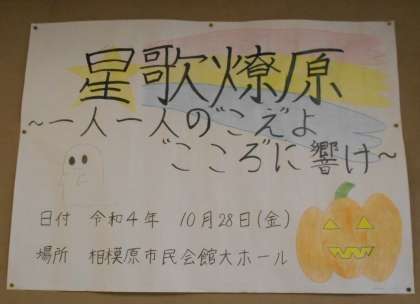 星歌燎原
～一人一人の"こえ"よ
"こころ"に響け～
日付 令和4年 10月28日(金)
場所 相模原市民会館大ホール